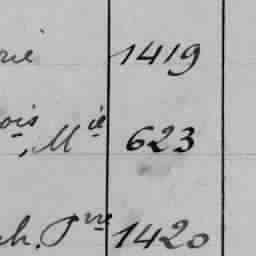 rie 1419
ois, Mie 623
ch. Pre 1420